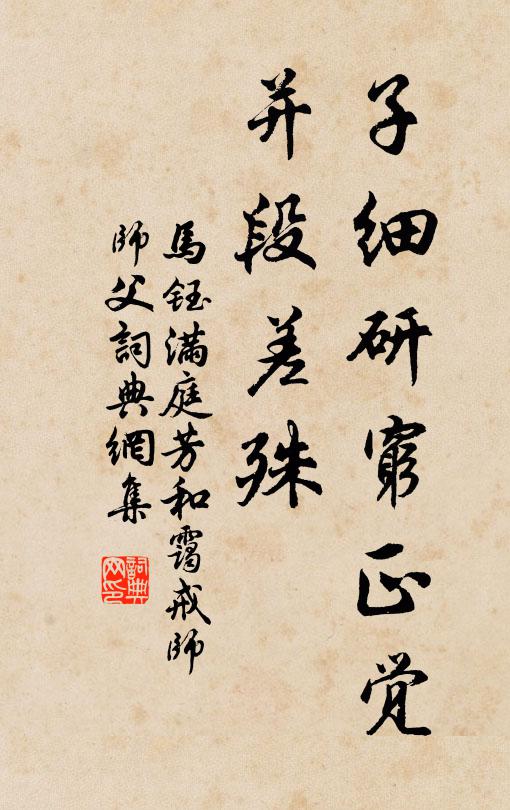 子细研穷正觉
并段差殊
馬鈺满庭芳和霭戒師
師父詞典網集
詞典网印